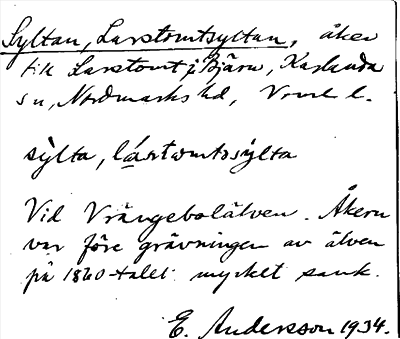 Syltan, Larstomtsyltan, åker
till Larstomt i Bjärn, Karlanda
sn, Nordmarks hd, Vrml l.
sỳlta, lárstωmtssỳlta
Vid Vrängebolälven. Åkern
var före grävningen av älven
på 1860-talet mycket sank.
E. Andersson 1934.